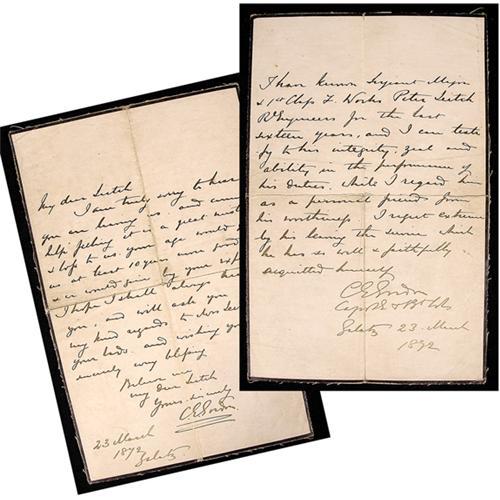 My dear Leitch
I am truly sorry to hear
you are leaving us, and cannot
help feeling it a great mistake
& loss to us. your age would
us at least 10 years more
would join by your
I hope I shall always hear
you, and will ask you
my kind regards to Mrs Leitch
your lads, and wishing you
sincerely every blessing
Believe me
my dear Leitch
Yours sincerely
C.E.Gordon
23 March
1872
Galatz
I have known Sergeant Major
& 1st Class F. Works Peter Leitch
Rl Engineers for the last
sixteen years, and I can testi
fy to his integrity, zeal and
ability in the performance of
his duties. While I regard him
as a personal friend from
his worthiness I regret extreme
ly his leaving the service which
he has so well & faithfully
acquitted himself
C.E.Gordon
Capt R.E & Bt Col
Galatz 23 March
1872